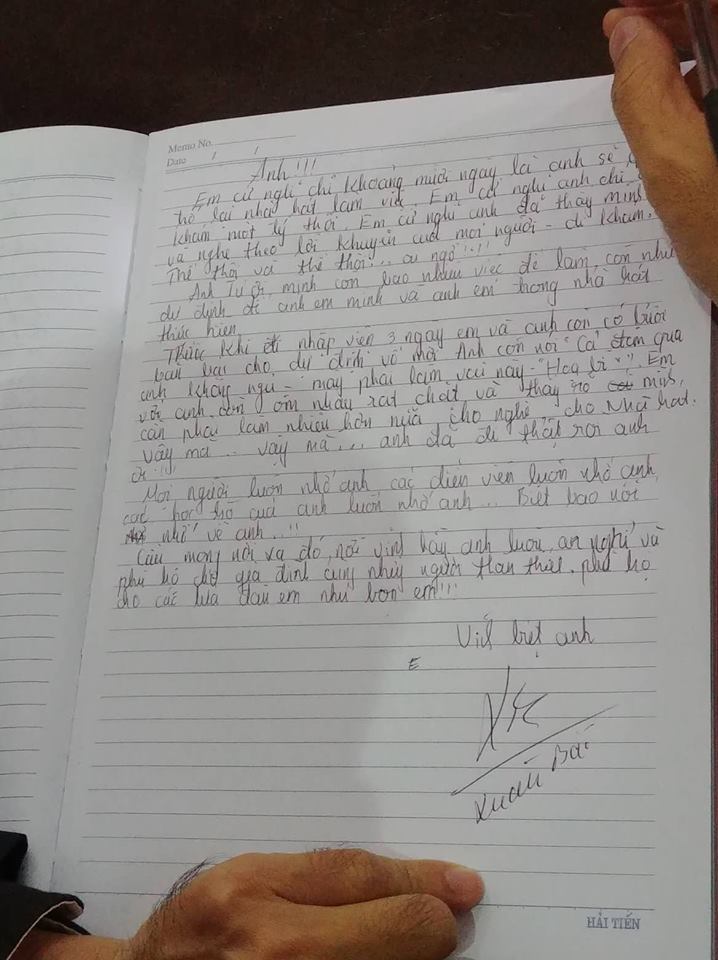 Memo No.
Date / /
Anh!!!
Em cứ nghĩ chỉ khoảng mười ngày là anh sẽ
trở lại nhà hát làm việc. Em cứ nghĩ anh chỉ
khám một tý thôi. Em cứ nghĩ anh đã thay mình
và nghe theo lời khuyên của mọi người - đi khám.
Thế thôi và thế thôi... ai ngờ!!!!
Anh Tư ơi, mình còn bao nhiêu việc để làm, còn nhiều
dự định để anh em mình và anh em trong nhà hát
thực hiện.
Trước khi đi nhập viện 3 ngày em và anh còn có buổi
anh không ngủ - mày phải làm vai này - "Hoa
với anh còn ôm nhau rất chặt và
cần phải làm nhiều hơn nữa cho nghề, cho Nhà hát.
Vậy mà... vậy mà... anh đã đi thật rồi anh
ơi!!!
Mọi người luôn nhớ anh, các diễn viên luôn nhớ anh,
các học trò của anh luôn nhớ anh... Biết bao nỗi
nhớ về anh...!!
Cầu mong nơi xa đó, nơi vĩnh hằng anh luôn an nghỉ và
phù hộ cho gia đình cùng những người thân thiết, phù hộ
cho các lứa đàn em như bọn em!!!
Vĩnh biệt anh
E
Xuân Bắc
HẢI TIẾN